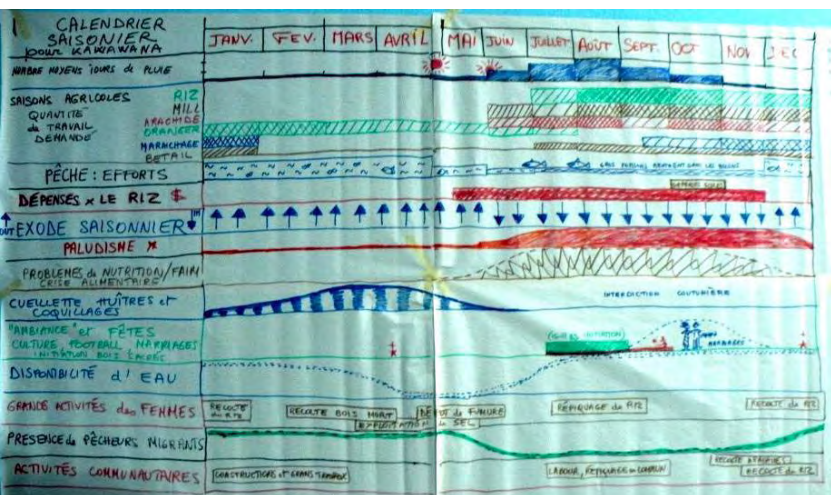 CALENDRIER
SAISONIER
pour KAWAWANA
JANV. FEV. MARS AVRIL MAI JUIN JUILLET AOÛT SEPT. OCT NOV DEC
NOMBRE MOYENS JOURS de PLUIE
SAISONS AGRICOLES RIZ
QUANTITÉ MILL
de TRAVAIL ARACHIDE
DEMANDÉ ORANGER
MARAICHAGE
BETAIL
PÊCHE: EFFORTS
DÉPENSES x LE RIZ $
EXODE SAISONNIER
PALUDISME
PROBLEMES de NUTRITION/FAIM
CRISE ALIMENTAIRE
CUEILLETTE HUÎTRES et
COQUILLAGES
INTERDICTION COUTUMIÈRE
"AMBIANCE" et FÊTES
CULTURE, FOOTBALL MARRIAGES
INITIATION BOIS SACRÉS
INITIATION
MARRIAGES
DISPONIBILITÉ d'EAU
GRANDE ACTIVITÉS des FEMMES
RECOLTE du RIZ
RECOLTE BOIS MORT
DÉPOT de FUMURE
EXPLOITATION de SEL
REPIQUAGE du RIZ
RECOLTE du RIZ
PRESENCE de PÊCHEURS MIGRANTS
ACTIVITÉS COMMUNAUTAIRES
CONSTRUCTIONS et GRANS TRAVAUX
LABOUR, REPIQUAGE en COMMUN
RECOLTE ARACHIDES
RECOLTE du RIZ